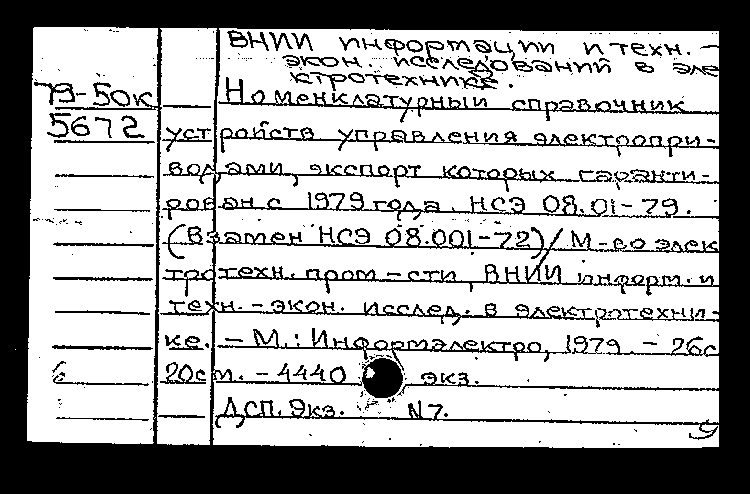 ВНИИ информации и техн.-
экон. исследований в эле
ктротехнике.
79-50к Номенклатурный справочник
5672 устройств управления электропри-
водами, экспорт которых гаранти-
рован с 1979 года. НСЭ 08.01-79.
(Взамен НСЭ 08.001-72)/ М-во элек
тротехн. пром-сти, ВНИИ информ. и
техн.-экон. исслед. в электротехни-
ке. - М.: Информэлектро, 1979. - 26с
20см. - 4440 экз.
ДСП. Экз. N7.